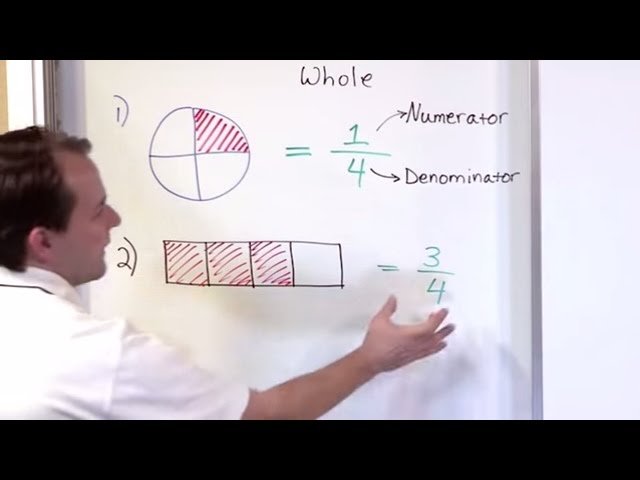 Whole
1) = 1/4 Numerator
Denominator
2) = 3/4